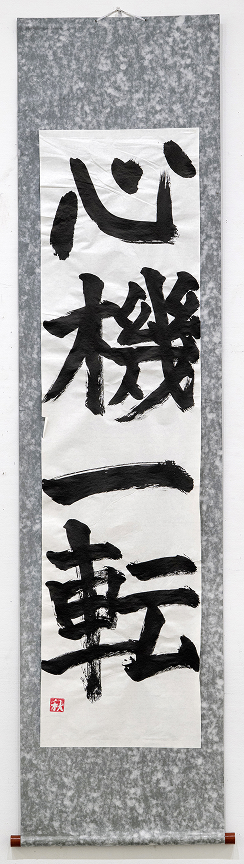 心機一転
秋